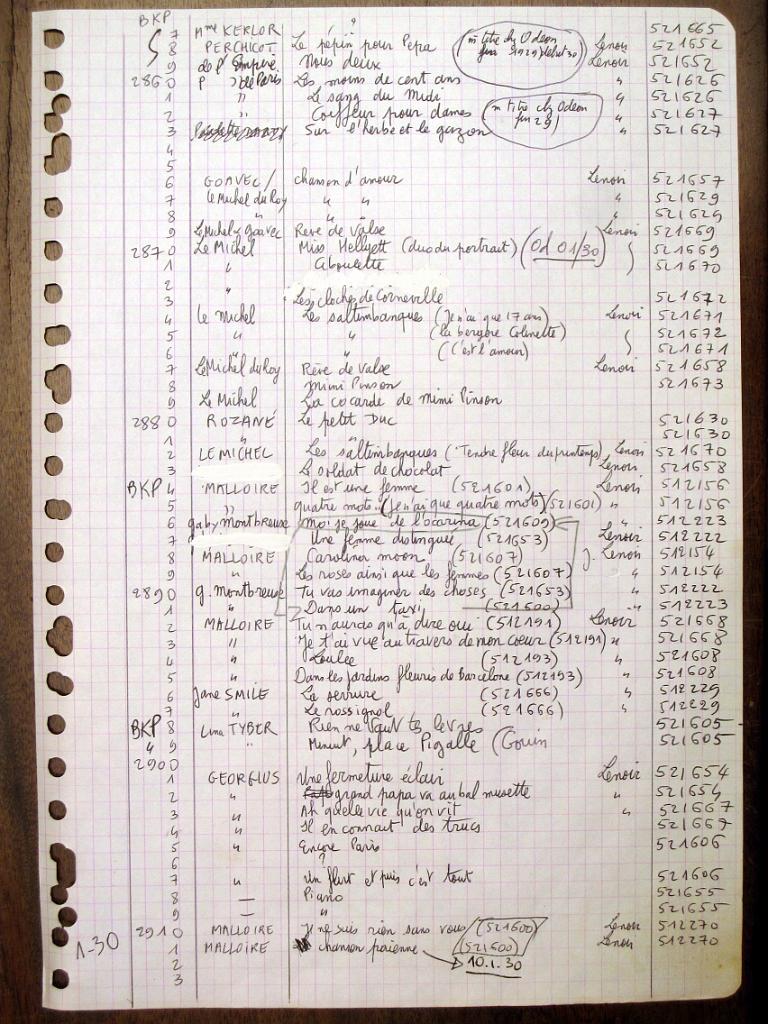 BKP
7 Mme KERLOR ? 521665
8 PERCHICOT Le pépin pour Pepa (m titre chz Odeon Lenoir 521652
9 de l'Empire Nous deux Lenoir 521652
2860 p de Paris Les moins de cent ans " 521626
1 " Le sang du Midi " 521626
2 " Coiffeur pour dames (m titre chz Odeon fin 29) " 521627
3 Sur l'herbe et le gazon " 521627
4
5
6 GOAVEC / chanson d'amour Lenoir 521657
7 le Michel du Roy " " " 521629
8 " " 521629
9 Le Michel/goavec Rêve de valse Lenoir 521669
2870 Le Michel Miss Hellyett (duo du portrait) (Od 01/30) 521669
1 " Ciboulette 521670
2 "
3 Les cloches de Corneville 521672
4 le Michel Les saltimbanques (Je n'ai que 17 ans) Lenoir 521671
5 " " (la bergère Colinette) 521672
6 " " (C'est l'amour) 521671
7 Le Michel du Roy Rêve de valse Lenoir 521658
8 Mimi Pinson 521673
9 Le Michel La cocarde de Mimi Pinson
2880 ROZANÉ Le petit Duc 521630
1 " 521630
2 LE MICHEL Les saltimbanques (Tendre fleur du printemps) Lenoir 521670
3 Le soldat de chocolat Lenoir 521658
BKP 4 MALLOIRE Il est une femme (521601) Lenoir 512156
5 " quatre mots (Je n'ai que quatre mots) (521601) " 512156
6 gaby montbreuse moi je joue de l'ocarina (521609) " 512223
7 Une femme distinguée (521653) Lenoir 512222
8 MALLOIRE Carolina moon (521607) Lenoir 512154
9 " Les roses ainsi que les femmes (521607) " 512154
2890 g. montbreuse Tu vas imaginer des choses (521653) " 512222
1 " Dans un taxi (521600) " 512223
2 MALLOIRE Tu n'auras qu'à dire oui (512191) Lenoir 521668
3 " Je t'ai vue au travers de mon coeur (512191) " 521668
4 " Loulée (512193) " 521608
5 " Dans les jardins fleuris de Barcelone (512193) " 521608
6 Jane SMILE La serrure (521666) " 512229
7 " Le rossignol (521666) " 512229
BKP 8 Lina TYBER Rien ne vaut tes lèvres 521605
" 9 " Minuit, place Pigalle (Gouin 521605
2900
1 GEORGIUS Une fermeture éclair Lenoir 521654
2 " grand papa va au bal musette " 521654
3 " Ah quelle vie qu'on vit " 521667
4 " Il en connait des trucs 521667
5 " Encore Paris 521606
6 ?
7 " Un flirt et puis c'est tout 521606
8 — Piano 521655
9 — " 521655
2910 MALLOIRE Je ne suis rien sans vous (521600) Lenoir 512270
1-30 1 MALLOIRE chanson païenne (521600) Lenoir 512270
2 10.1.30
3